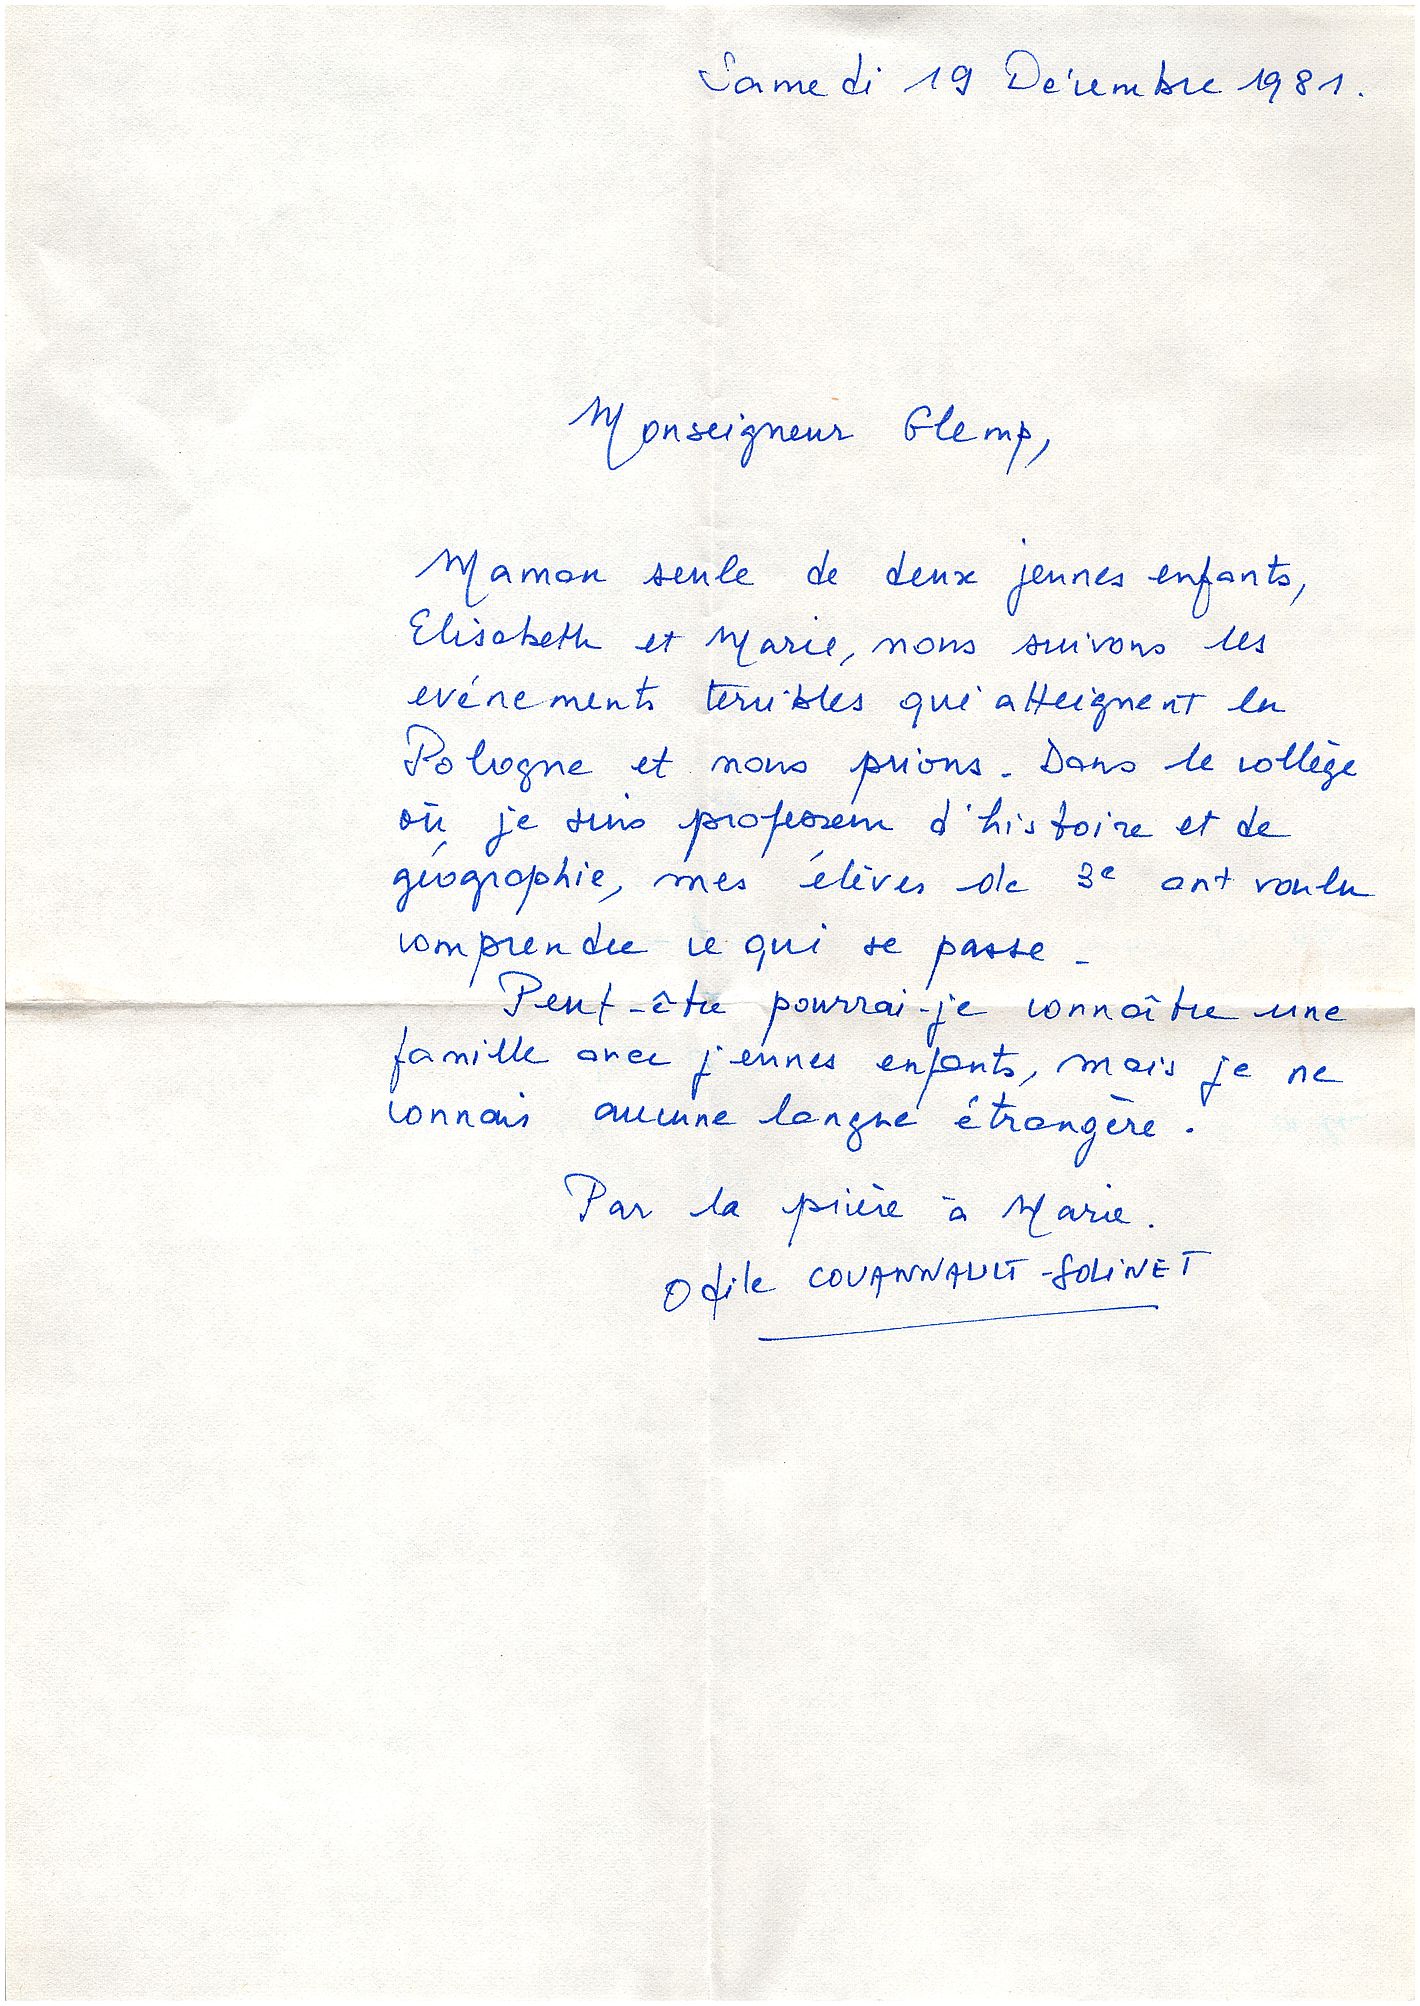 Samedi 19 Décembre 1981.
Monseigneur Glemp,
Maman seule de deux jeunes enfants,
Elisabeth et Marie, nous suivons les
evénements terribles qui atteignent la
Pologne et nous prions. Dans le collège
où je suis professeur d'histoire et de
géographie, mes élèves de 3e ont voulu
comprendre ce qui se passe.
Peut-être pourrai-je connaître une
famille avec jeunes enfants, mais je ne
connais aucune langue étrangère.
Par la prière à Marie.
Odile COUANNAULT-GOLINET